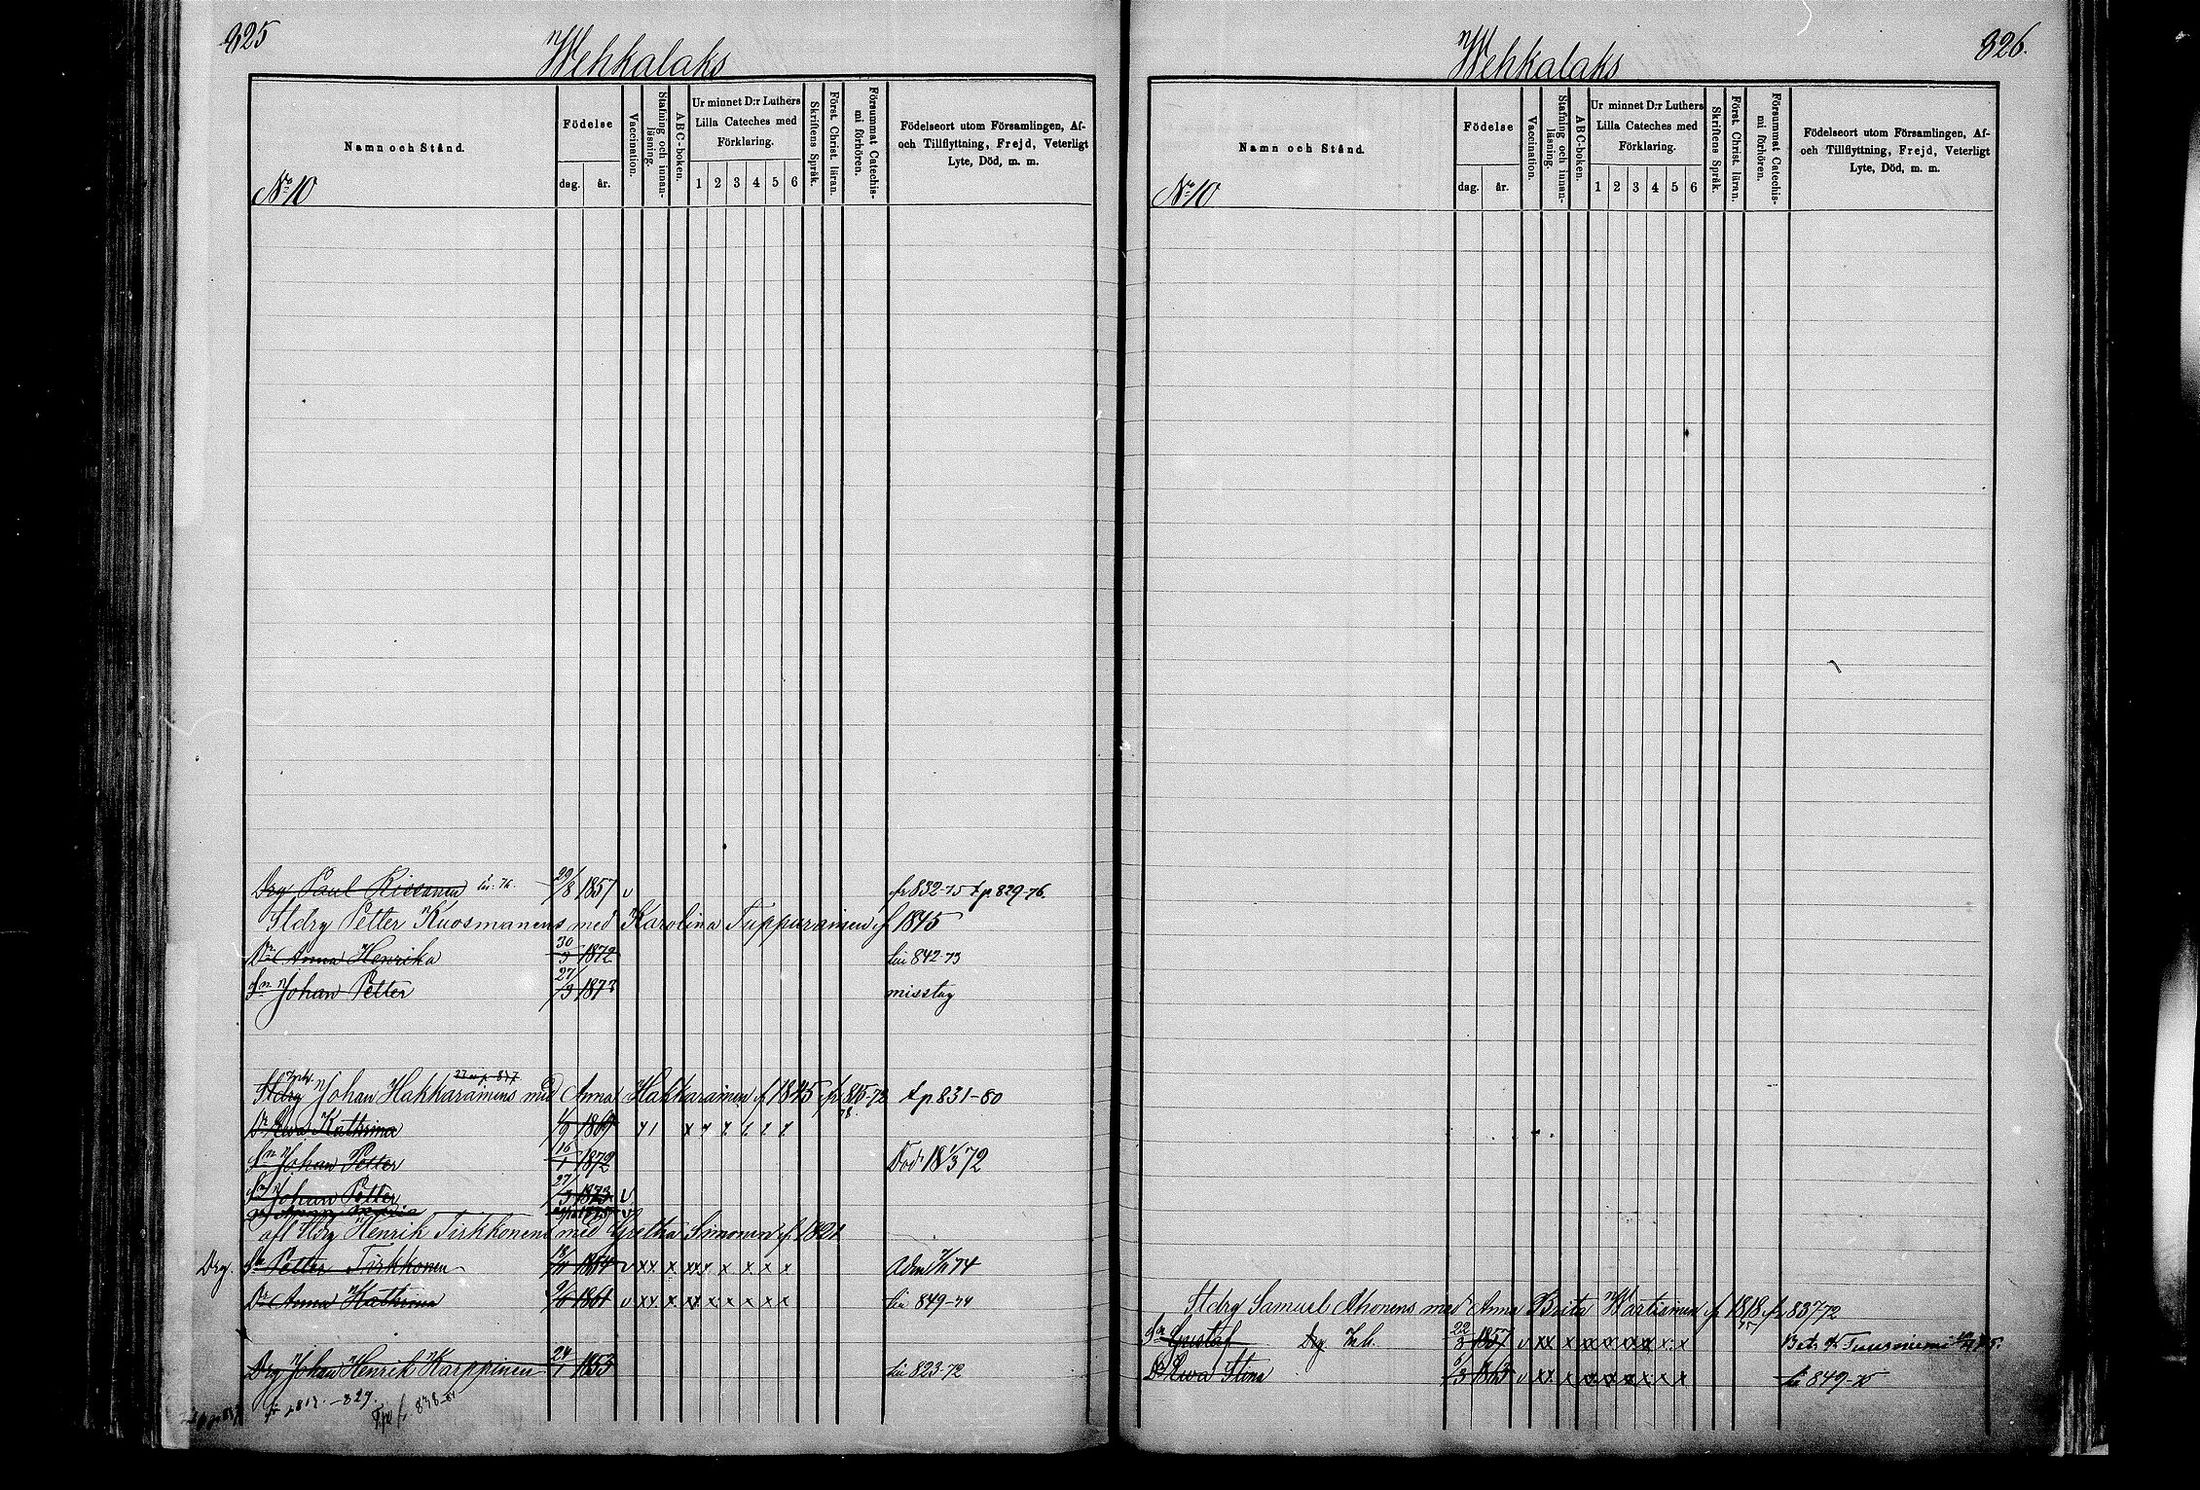 825
Wehkalaks
Namn och Stånd.
Födelse
dag. år.
Vaccination.
Stafning och innan-läsning.
ABC-boken.
Ur minnet D:r Luthers Lilla Cateches med Förklaring.
1 2 3 4 5 6
Skriftens Språk.
Först. Christ. läran.
Försummat Catechis-mi förhören.
Födelseort utom Församlingen, Af-
och Tillflyttning, Frejd, Veterligt
Lyte, Död, m. m.
No 10
Drg Paul 29/8 1857 v fr 832-75 t p 829-76.
Stdrg Petter Kuosmanens med Karolina Tuppurainen f 1845
Dr Anna Henrika 30/3 1872 842-73
Sn Johan Petter 27/3 1873 misstag
Stdrg Johan Hakkarainens med Anna Hakkarainen f 1845 fr 815-72 t p 831-80
Dr Ewa Kathrina 1869
Sn Johan Petter 16/1 1872 Död 18 1/3 72
Sn Johan Petter 27/3 1873 v
Anna Maria
afl Stdrg Henrik Tirkkonens med Gretha Simonen f. 1821
Drg. Sn Petter Tirkkonen 1854 v xx x xx x x x x x
Dr Anna Kathrina 1861 v xx x xx x x x x x 849-74
Drg Johan Henrik Karppinen 24/1 1853 823-72
826.
Wehkalaks
Namn och Stånd.
Födelse
dag. år.
Vaccination.
Stafning och innan-läsning.
ABC-boken.
Ur minnet D:r Luthers Lilla Cateches med Förklaring.
1 2 3 4 5 6
Skriftens Språk.
Först. Christ. läran.
Försummat Catechis-mi förhören.
Födelseort utom Församlingen, Af-
och Tillflyttning, Frejd, Veterligt
Lyte, Död, m. m.
No 10
Stdrg Samuel Ahonens med Anna Brita Martiainen f 1818 fr 837-72
Sn Gustaf Drg 22/3 1857 v xx x xx x xx x x Tuusniemi
Dr Ewa Stina 6/3 1863 v xx x xx x x x x x 849-75